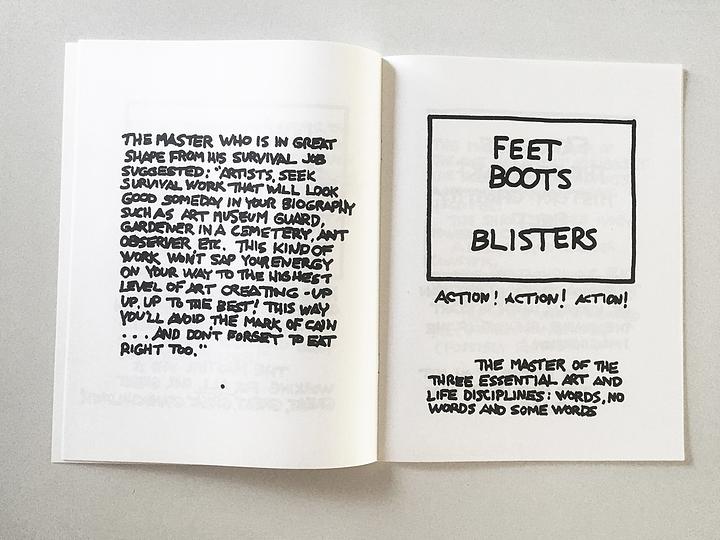 THE MASTER WHO IS IN GREAT
SHAPE FROM HIS SURVIVAL JOB
SUGGESTED: "ARTISTS, SEEK
SURVIVAL WORK THAT WILL LOOK
GOOD SOMEDAY IN YOUR BIOGRAPHY
SUCH AS ART MUSEUM GUARD,
GARDENER IN A CEMETERY, ANT
OBSERVER ETC. THIS KIND OF
WORK WON'T SAP YOUR ENERGY
ON YOUR WAY TO THE HIGHEST
LEVEL OF ART CREATING - UP
UP, UP TO THE BEST! THIS WAY
YOU'LL AVOID THE MARK OF CAIN
... AND DON'T FORGET TO EAT
RIGHT TOO."
FEET
BOOTS
BLISTERS
ACTION! ACTION! ACTION!
THE MASTER OF THE
THREE ESSENTIAL ART AND
LIFE DISCIPLINES: WORDS, NO
WORDS AND SOME WORDS